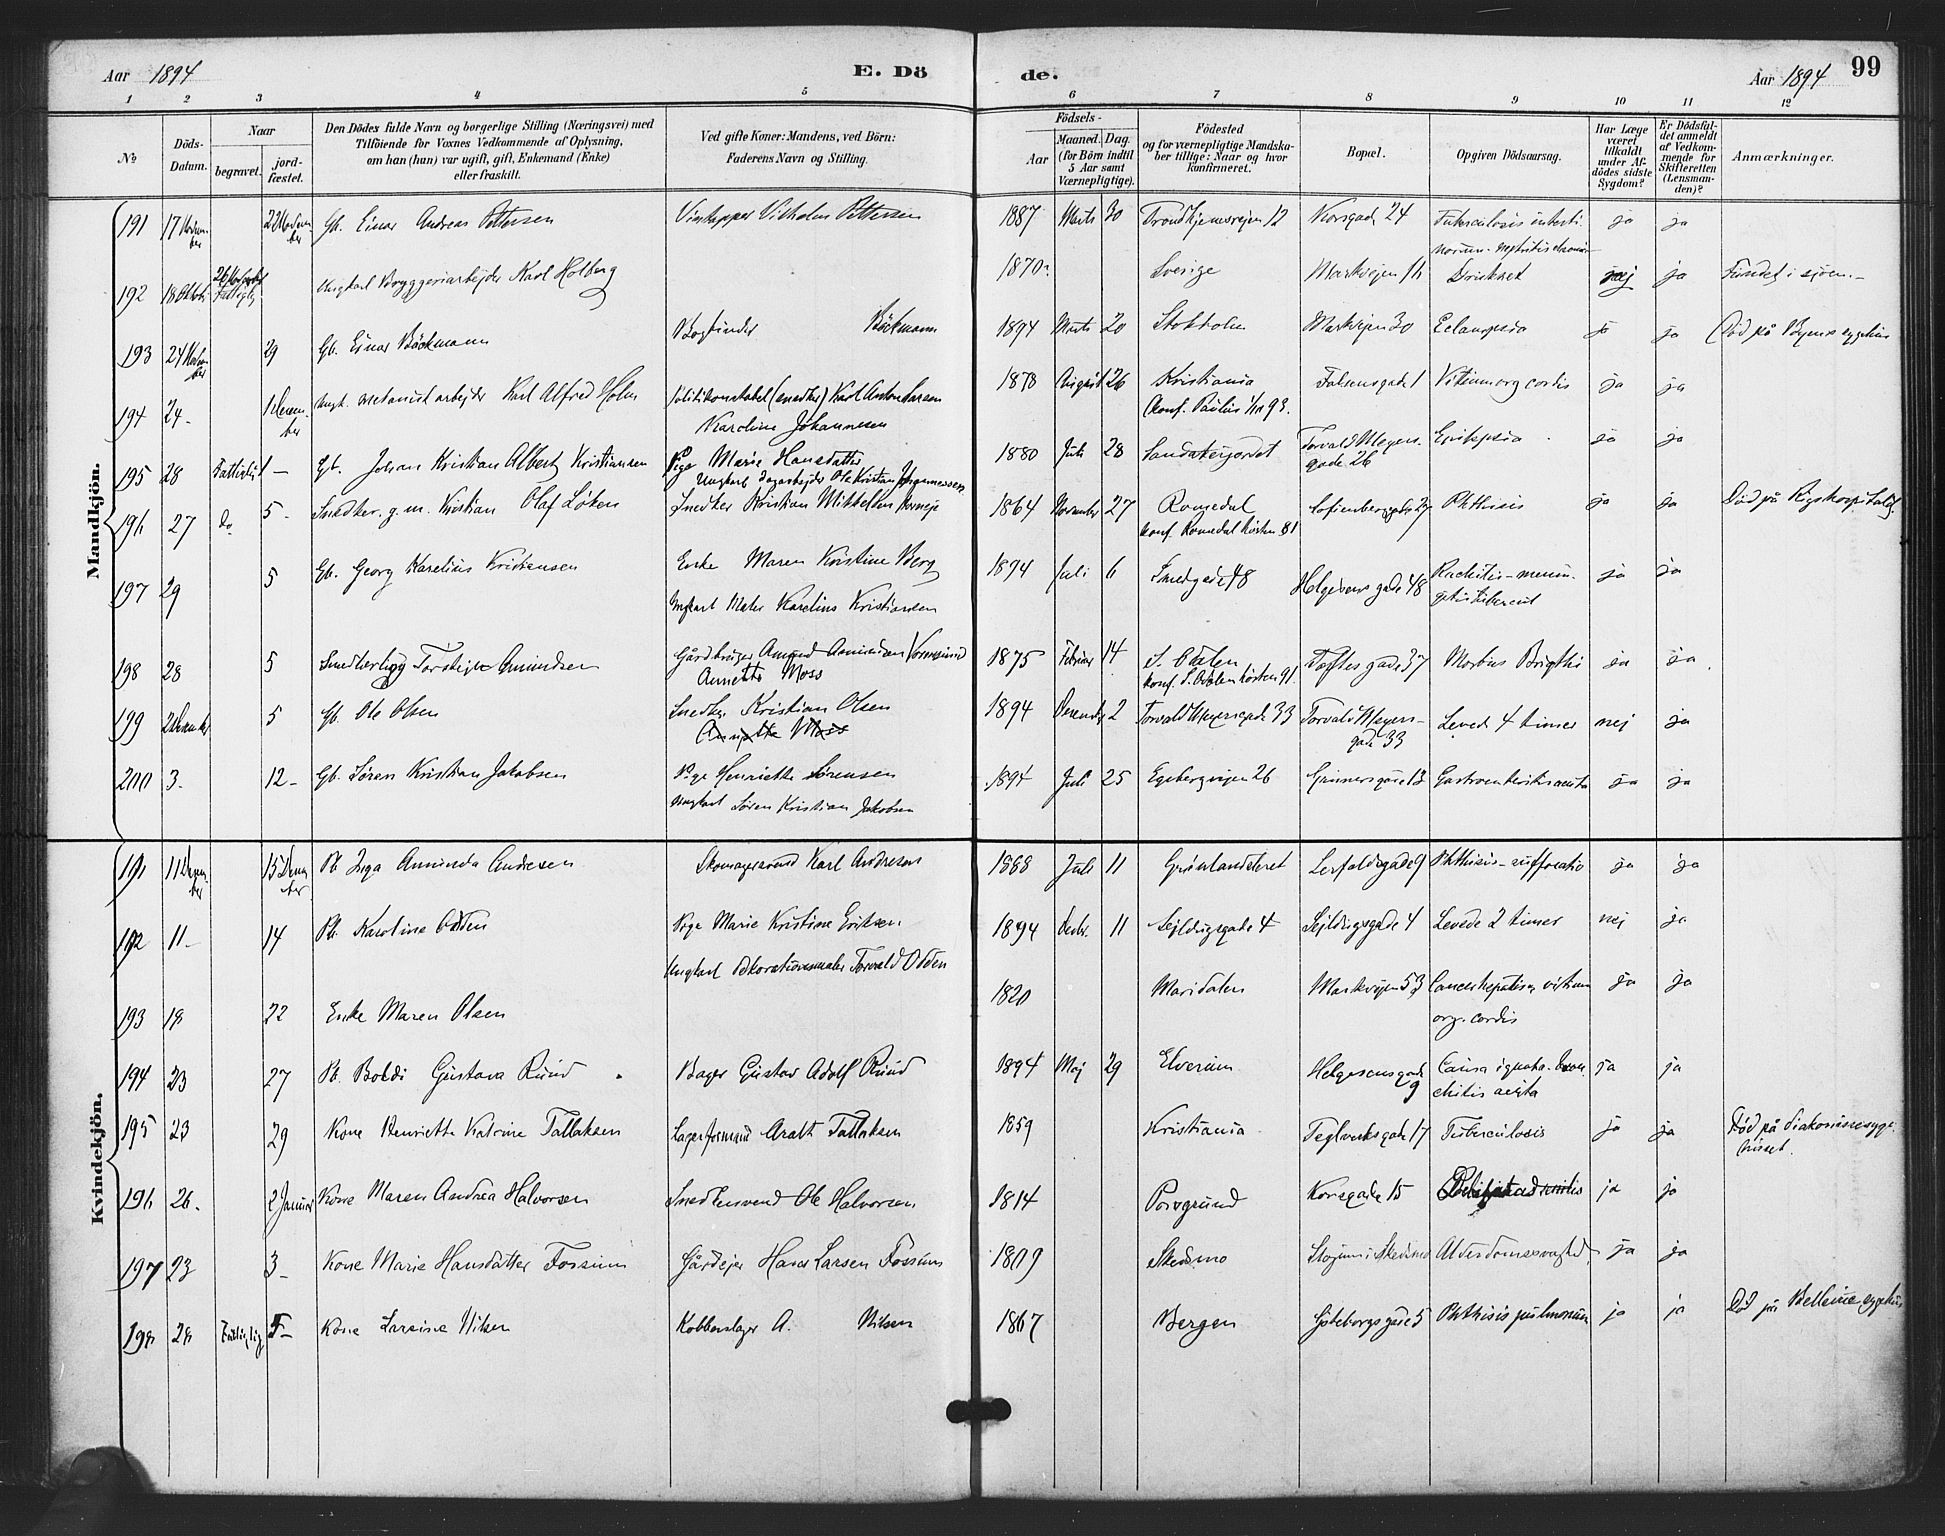 Aar 1894 E. Dö de. Aar 1894 99
1 2 3 4 5 6 7 8 9 10 11 12
№
Döds-Datum.
Naar
begravet.
jord-fæstet.
Den Dödes fulde Navn og borgerlige Stilling (Næringsvei) med
Tilföiende for Voxnes Vedkommende af Oplysning,
om han (hun) var ugift, gift, Enkemand (Enke)
eller fraskilt.
Ved gifte Koner: Mandens, ved Börn:
Faderens Navn og Stilling.
Födsels-
Aar
Maaned. Dag.
(for Börn indtil
5 Aar samt
Værnepligtige).
Födested
og for værnepligtige Mandska-
ber tillige: Naar og hvor
konfirmeret.
Bopæl.
Opgiven Dödsaarsag.
Har Læge
været
tilkaldt
under Af-
dödes sidste
Sygdom?
Er Dödsfal-
det anmeldt
af Vedkom-
mende for
Skifteretten
(Lensman-
den)?
Anmærkninger.
Mandkjön.
191 17 Novem-ber 22 Novem-ber Gb. Einar Andreas Pettersen Vilhelm Pettersen 1887 Marts 30 Trondhjemsvejen 12 Korsgade 24 Tuberculosis intesti-
norum - Nephritis ja ja
192 18 Oktobr Fattiglig Ungkarl Bryggeriarbejder Karl Holberg 1870 Sverige Markvejen 11 Druknet nej ja Fundet i sjøen.-
193 24 Novem-ber 29 Gb. Einar Bäckmann Bogbinder Bäckmann 1894 Marts 20 Stokholm Markvejen 30 Eclampsia ja ja Død på Byens sygehus
194 24. 1 Decem-ber Ungk. mekanisk arbejder Karl Alfred Holm Politikonstabel (snedker) Karl Anton Larsen
Karoline Johannesen 1878 August 26 Kristiania
Konf. Paulus 1/10 93. Falsensgade 1 Vitium org cordis ja ja
195 28 Fattiglig 1 - Gb. Johan Kristian Albert Kristiansen Pige Marie Hansdatter
Ungkarl dagarbejder Ole Kristian Johannessen 1880 Juli 28 Sandakerjordet Torvald Meyers-
gade 26 Epilepsia ja ja
196 27 Do 5 - Snedker, g.m. Kristian Olaf Løken Snedker Kristian Mikkelsen 1864 November 27 Romedal
konf. Romedal Høsten 81 Sofienberggade 27 Phthisis ja ja Død på Rigshospitalet
197 29 5 Gb. Georg Karelius Kristiansen Enke Maren Kristine Berg
Ungkarl Maler Karelius Kristiansen 1894 Juli 6 Smedgade 48 Helgesens gade 48 Rachitis - menin-
gitis tubercul ja ja
198 28 5 Snedkerlærling Torstejn Amundsen Gårdbruger Amund Amundsen
Annette Moss 1875 Februar 14 S. Odalen
konf. S. Odalen høsten 91. Toftesgade 37 Morbus Brigthi ja ja
199 2 December 5 Gb. Ole Olsen Snedker Kristian Olsen
Annette Moss 1894 December 2 Torvald Meyersgade 33 Torvald Meyers-
gade 33 Levede 4 timer nej ja
200 3. 12 - Gb. Søren Kristian Jakobsen Pige Henriette Sørensen
Ungkarl Søren Kristian Jakobsen 1894 Juli 25 Egebergvejen 26 Grünersgade 13 Gastroenteritis acuta ja ja
Kvindekjön.
191 11 Decem-ber 15 Decem-ber Pb. Inga Amunda Andresen Skomagersvend Karl Andresen 1888 Juli 11 Grønlandsleret Lerfaldsgade 9 Phthisis - suffocatio ja ja
192 11 - 14 Pb. Karoline Odden Pige Marie Kristine Eriksen
Ungkarl Dekorationsmaler Torvald Odden 1894 Decbr. 11 Sejldugsgade 4 Sejldugsgade 4 Levede 2 timer nej ja
193 18 22 Enke Maren Olsen 1820 Maridalen Markvejen 53 Cancer hepatis, vitium
org. cordis ja ja
194 23 27 Pb. Boldi Gustava Ruud Bager Gustav Adolf Ruud 1894 Maj 29 Elverum Helgesensgade
9 Causa ignota - bron-
chitis acuta ja ja
195 23 29 Kone Henriette Katrine Tallaksen Lagerformand Aralt Tallaksen 1859 Kristiania Teglverksgade 17 Tuberculosis ja ja Død på diakonissesyge-
huset.
196 26. 2 Januar Kone Maren Andrea Halvorsen Snedkersvend Ole Halvorsen 1814 Porsgrund Korsgade 15 ja ja
197 23 3 - Kone Marie Hansdatter Fossum Gårdejer Hans Larsen Fossum 1809 Skedsmo i Skedsmo Alderdomssvaghed ja ja
198 28 Fattiglig 5 - Kone Larsine Nilsen Kobberslager A. Nilsen 1867 Bergen Gøteborgsgade 5 Phthisis pulmonum ja ja Død på sygehus